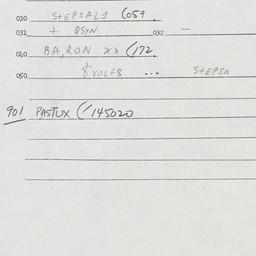 030 STEPSAL1 (059
031 + QSYN 032 —
040 BA,RON xx (172.
050 $VOLFS ... STEPSN
901 PASTUX (/145020